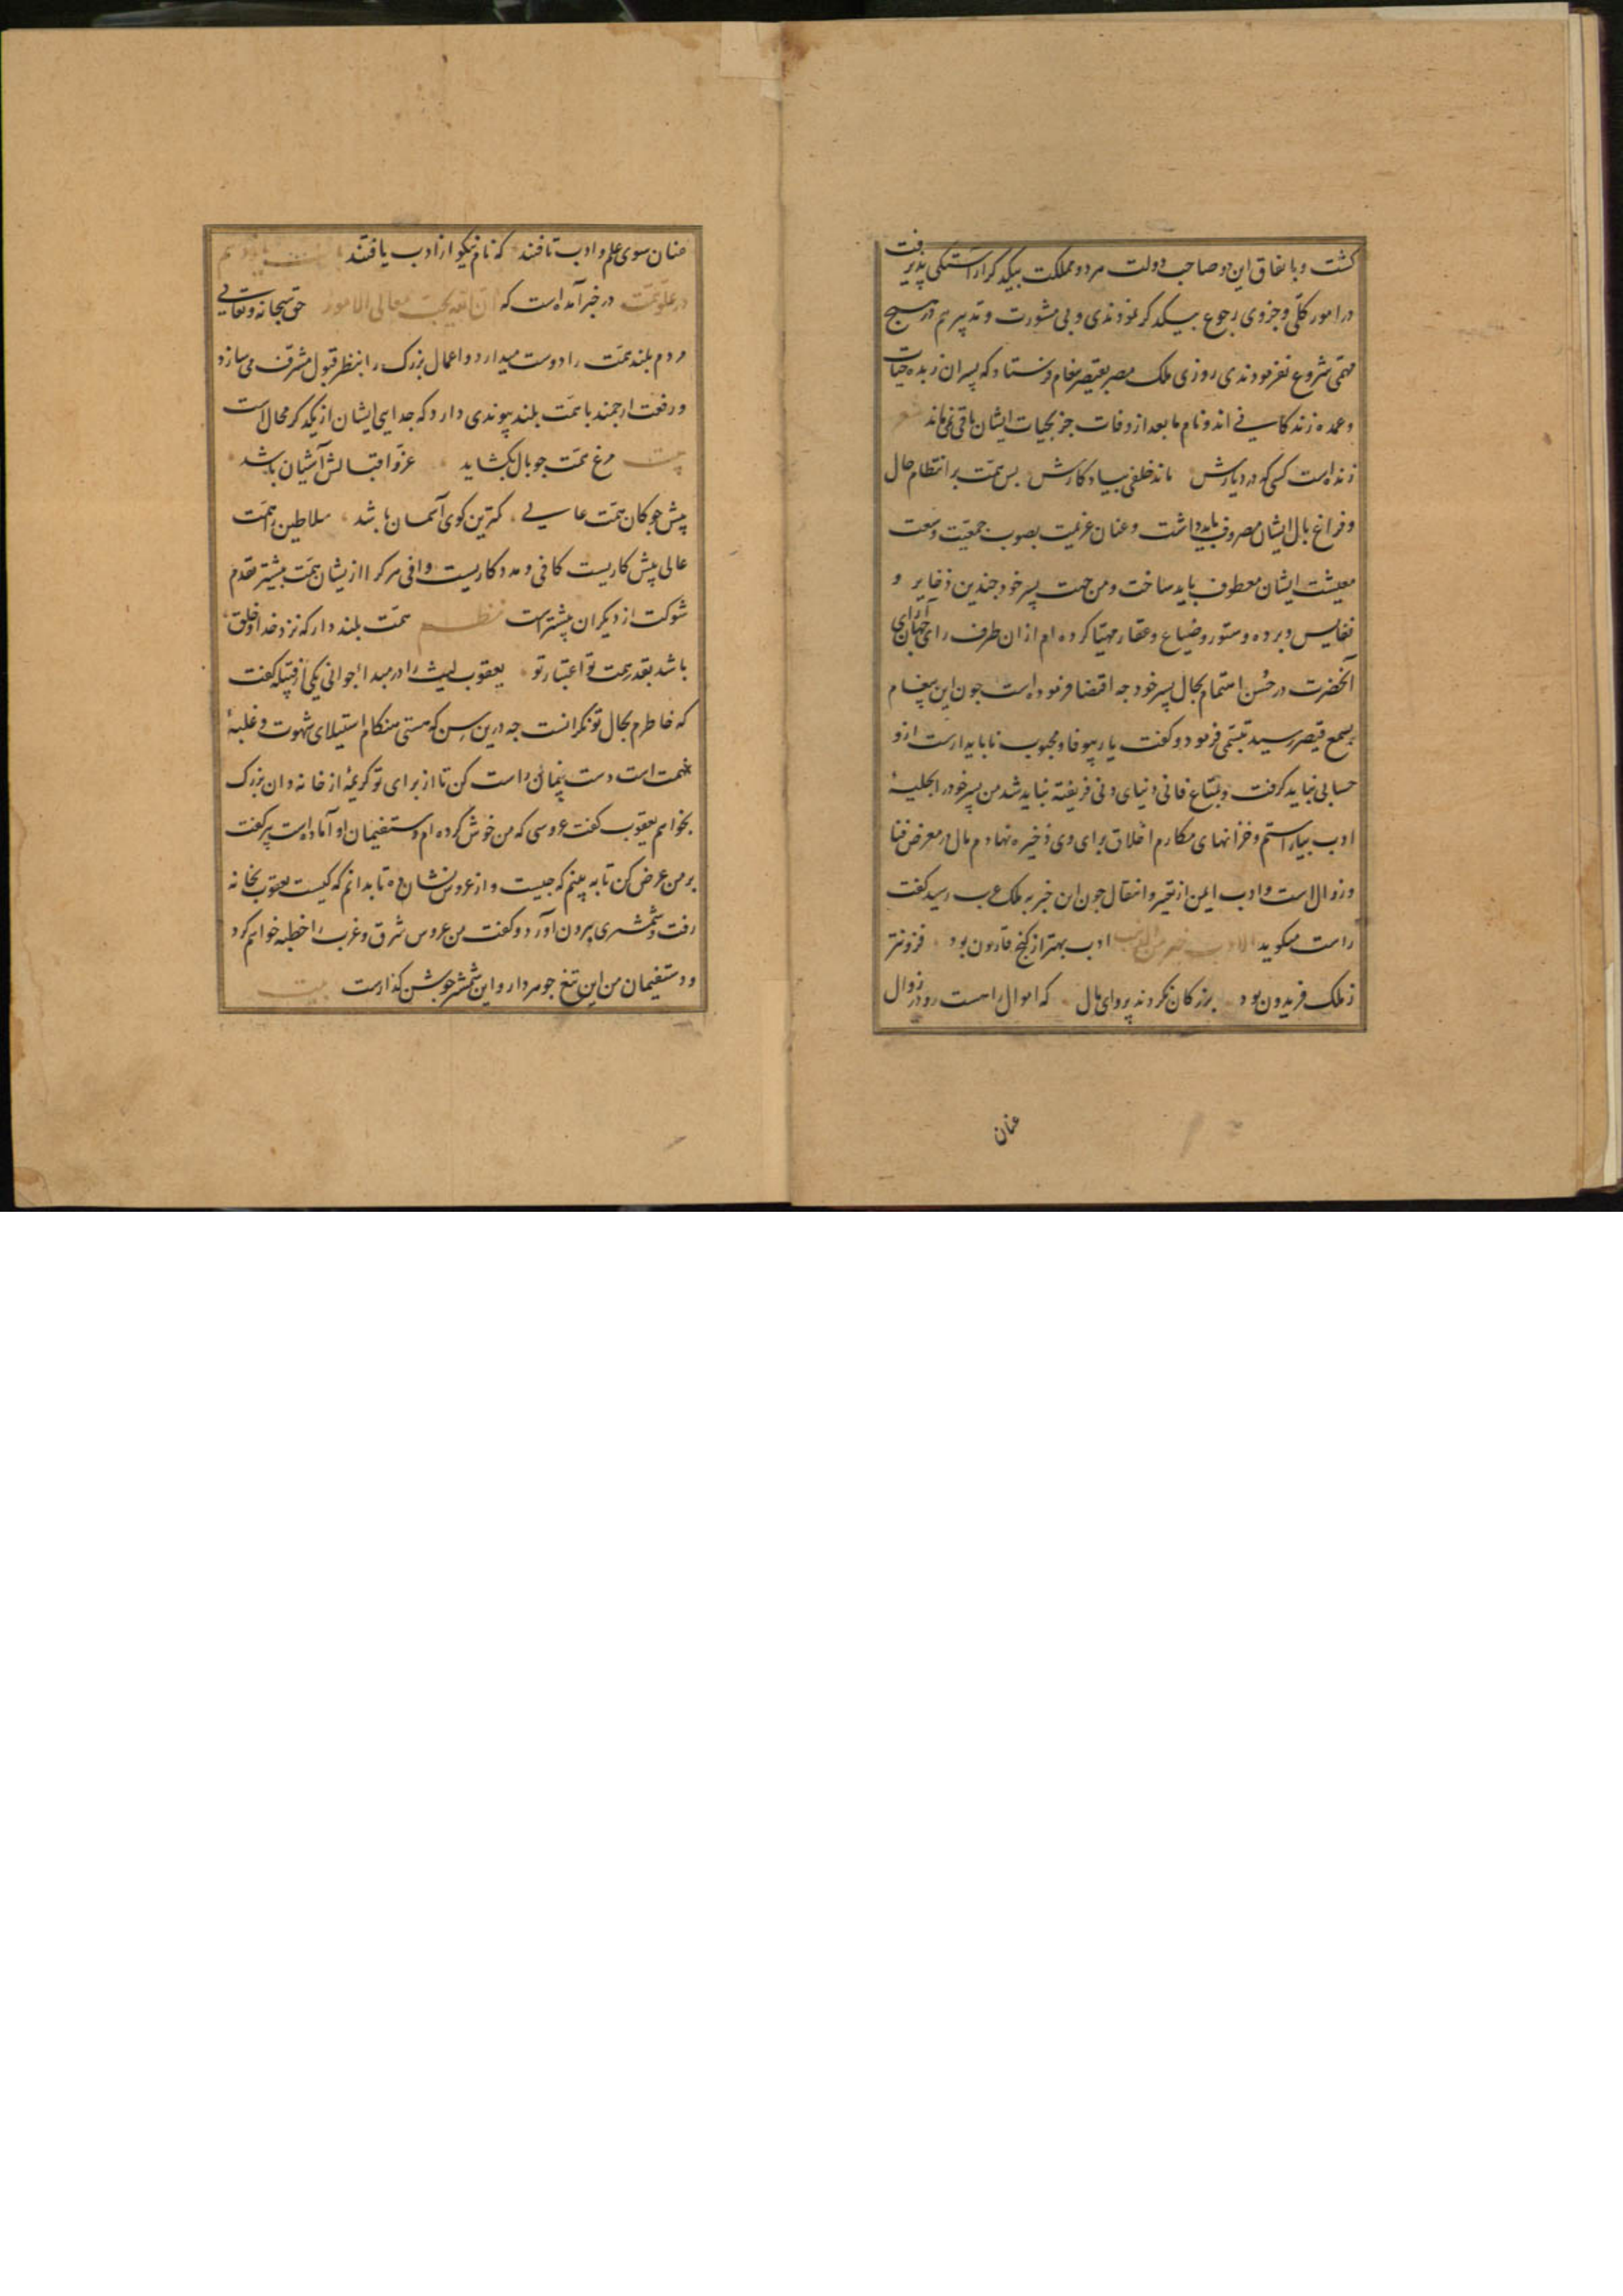 کشت و باتفاق این دو صاحب دولت هر دو مملکت بیکدیکر آراستکی پذیرفت
در امور کلّی و جزوی رجوع بیکدیکر نمودندی و بی مشورت و تدبیر هم در هیچ
مهمّی شروع نفرمودندی روزی ملک مصر بقیصر پیغام فرستاد که پسران زبده حیات
و عمده زندکانی اند و نام ما بعد از وفات جز بحیات ایشان باقی نمی ماند شعر
زنده است کسی که در دیارش ماند خلفی بیادکارش بس همّت بر انتظام حال
و فراغ بال ایشان مصروف باید داشت و عنان عزیمت بصوب جمعیّت و سعت
معیشت ایشان معطوف باید ساخت و من جهت پسر خود جندین ذخایر و
نفایس و برده و ستور و ضیاع و عقار مهیّا کرده ام از ان طرف رای جهان آرای
آنحضرت در حُسن اهتمام بحال پسر خود جه اقتضا فرموده است جون این پیغام
بسمع قیصر رسید تبسّمی فرمود و کفت یار بیوفا و محبوب ناپایدارست ازو
حسابی نباید کرفت و بمتاع فانی دنیای دنی فریفته نباید شد من پسر خود را بحلیهٔ
ادب بیاراستم و خزانهای مکارم اخلاق برای وی ذخیره نهادم مال در معرض فنا
و زوال است و ادب ایمن از تغیر و انتقال جون این خبر بملک عرب رسید کفت
راست میکوید الادب خیر من الذهب ادب بهتر از کنج قارون بود فزونتر
ز ملک فریدون بود بزرکان نکردند پروای مال که اموال را هست رو در زوال
عنان
عنان سوی علم و ادب تافتند که نام نیکو از ادب یافتند
در علوّ همّت در خبر آمده است که ان الله یحب معالی الامور حق سبحانه و تعالی
مردم بلند همّت را دوست میدارد و اعمال بزرک را بنظر قبول مشرف می سازد
و رفعت ارجمند با همّت بلند پیوندی دارد که جدایی ایشان از یکدیکر محال است
بیت مرغ همّت جو بال بکشاید عزّ و اقبالش آشیان باشد
پیش جوکان همّت عالی کمترین کوی آسمان باشد سلاطین را همّت
عالی پیش کاریست کافی و مدد کاریست وافی هر کرا از یشان همّت بیشتر تقدم
شوکت از دیکران بیشتر است نظم همّت بلند دار که نزد خدا و خلق
باشد بقدر همت تو اعتبار تو یعقوب لیث را در مبدا جوانی یکی از قبیله کفت
که خاطرم بحال تو نکرانست جه درین سن که هستی هنکام استیلای شهوت و غلبهٔ
نهمت است دست پیمان راست کن تا از برای تو کریمهٔ از خانه دان بزرک
بخواهم یعقوب کفت عروسی که من خوش کرده ام دستفیمان او آماده است پیر کفت
بر من عرض کن تا به بینم که جیست و از عروس نشان ده تا بدانم که کیست یعقوب بخانه
رفت و شمشیری بیرون آورد و کفت من عروس شرق و غرب را خطبه خواهم کرد
و دستفیمان من این تیغ جوهردار و این شمشیر جوشن کذارست بیت